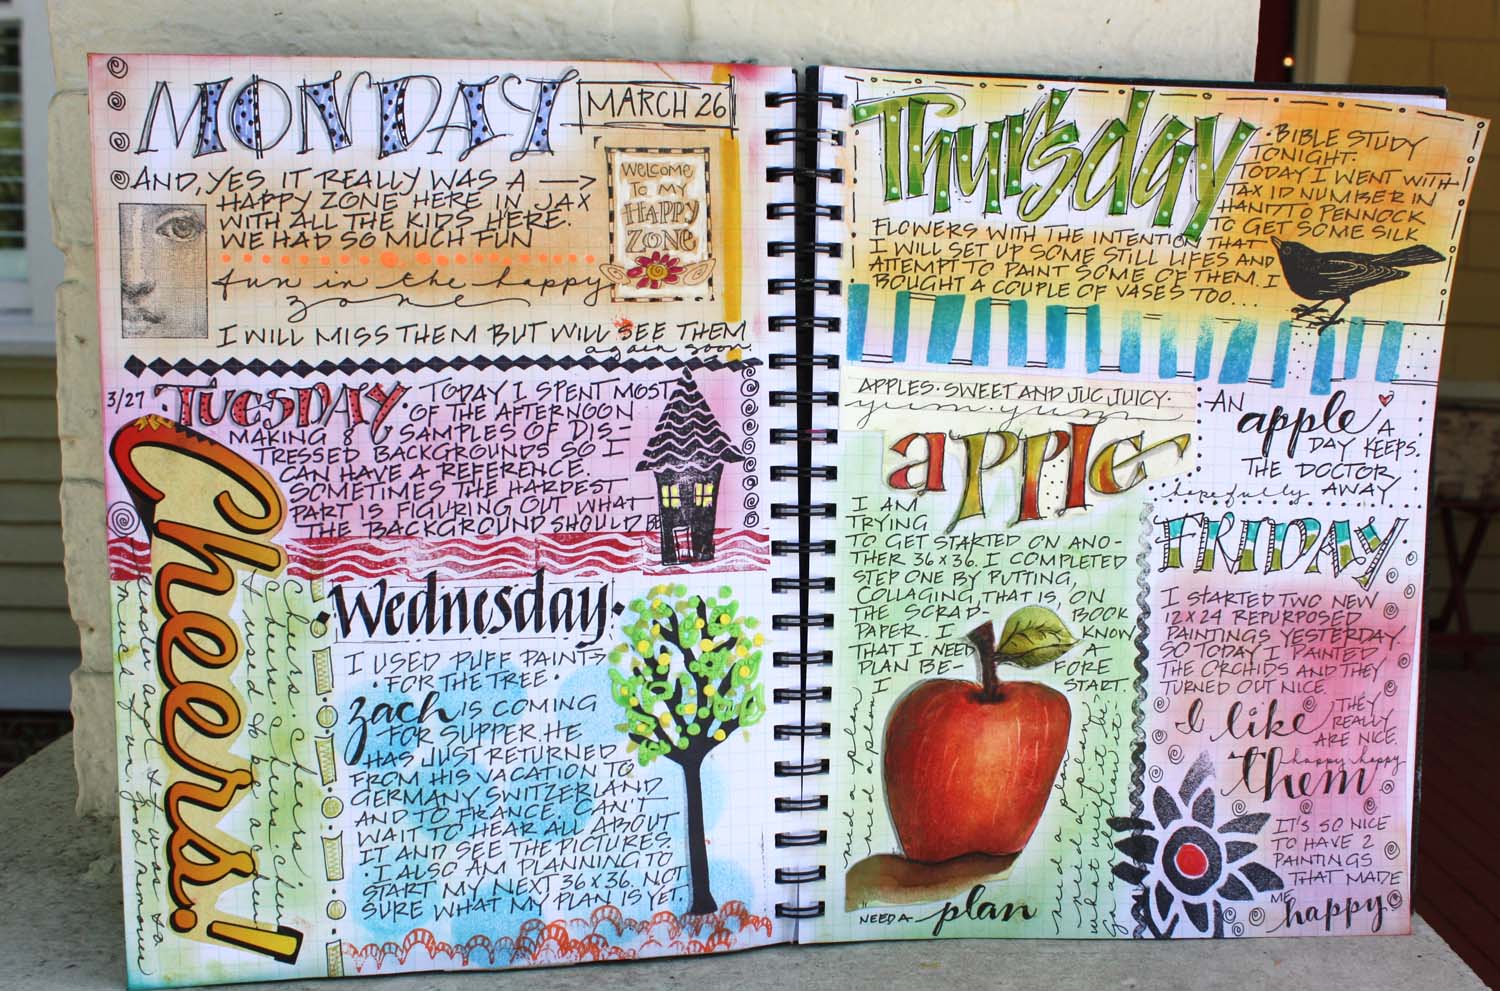 MONDAY
MARCH 26
AND, YES, IT REALLY WAS A
HAPPY ZONE HERE IN JAX
WITH ALL THE KIDS HERE.
WE HAD SO MUCH FUN
WELCOME
TO MY
HAPPY
ZONE
fun in the happy
zone
I WILL MISS THEM BUT WILL SEE THEM
again soon.
3/27 TUESDAY. TODAY I SPENT MOST
OF THE AFTERNOON
MAKING 8 SAMPLES OF DIS-
TRESSED BACKGROUNDS SO I
CAN HAVE A REFERENCE.
SOMETIMES THE HARDEST
PART IS FIGURING OUT WHAT
THE BACKGROUND SHOULD BE
Cheers!
cheers. cheers
Wednesday.
I USED PUFF PAINT
• FOR THE TREE •
zach IS COMING
FOR SUPPER. HE
HAS JUST RETURNED
FROM HIS VACATION TO
GERMANY, SWITZERLAND
AND TO FRANCE. CAN'T
WAIT TO HEAR ALL ABOUT
IT AND SEE THE PICTURES.
• I ALSO AM PLANNING TO
START MY NEXT 36x36. NOT
SURE WHAT MY PLAN IS YET.
Thursday
• BIBLE STUDY
TONIGHT.
TODAY I WENT WITH
TAX ID NUMBER IN
HAND TO PENNOCK
TO GET SOME SILK
FLOWERS WITH THE INTENTION THAT
I WILL SET UP SOME STILL LIFES AND
ATTEMPT TO PAINT SOME OF THEM. I
BOUGHT A COUPLE OF VASES TOO...
APPLES • SWEET AND JUC JUICY.
yum • yum
apple
I AM
TRYING
TO GET STARTED ON ANO-
THER 36x36. I COMPLETED
STEP ONE BY PUTTING,
COLLAGING, THAT IS, ON
THE SCRAP- BOOK
PAPER. I KNOW
THAT I NEED A
PLAN BE- FORE
I START.
need a plan
need a plan
NEED A plan
AN apple A
DAY KEEPS.
THE DOCTOR
hopefully AWAY
FRIDAY.
I STARTED TWO NEW
12x24 REPURPOSED
PAINTINGS YESTERDAY.
SO TODAY I PAINTED
THE ORCHIDS AND THEY
TURNED OUT NICE.
I like THEY
REALLY
ARE NICE.
them happy happy
IT'S SO NICE
TO HAVE 2
PAINTINGS
THAT MADE
ME happy.